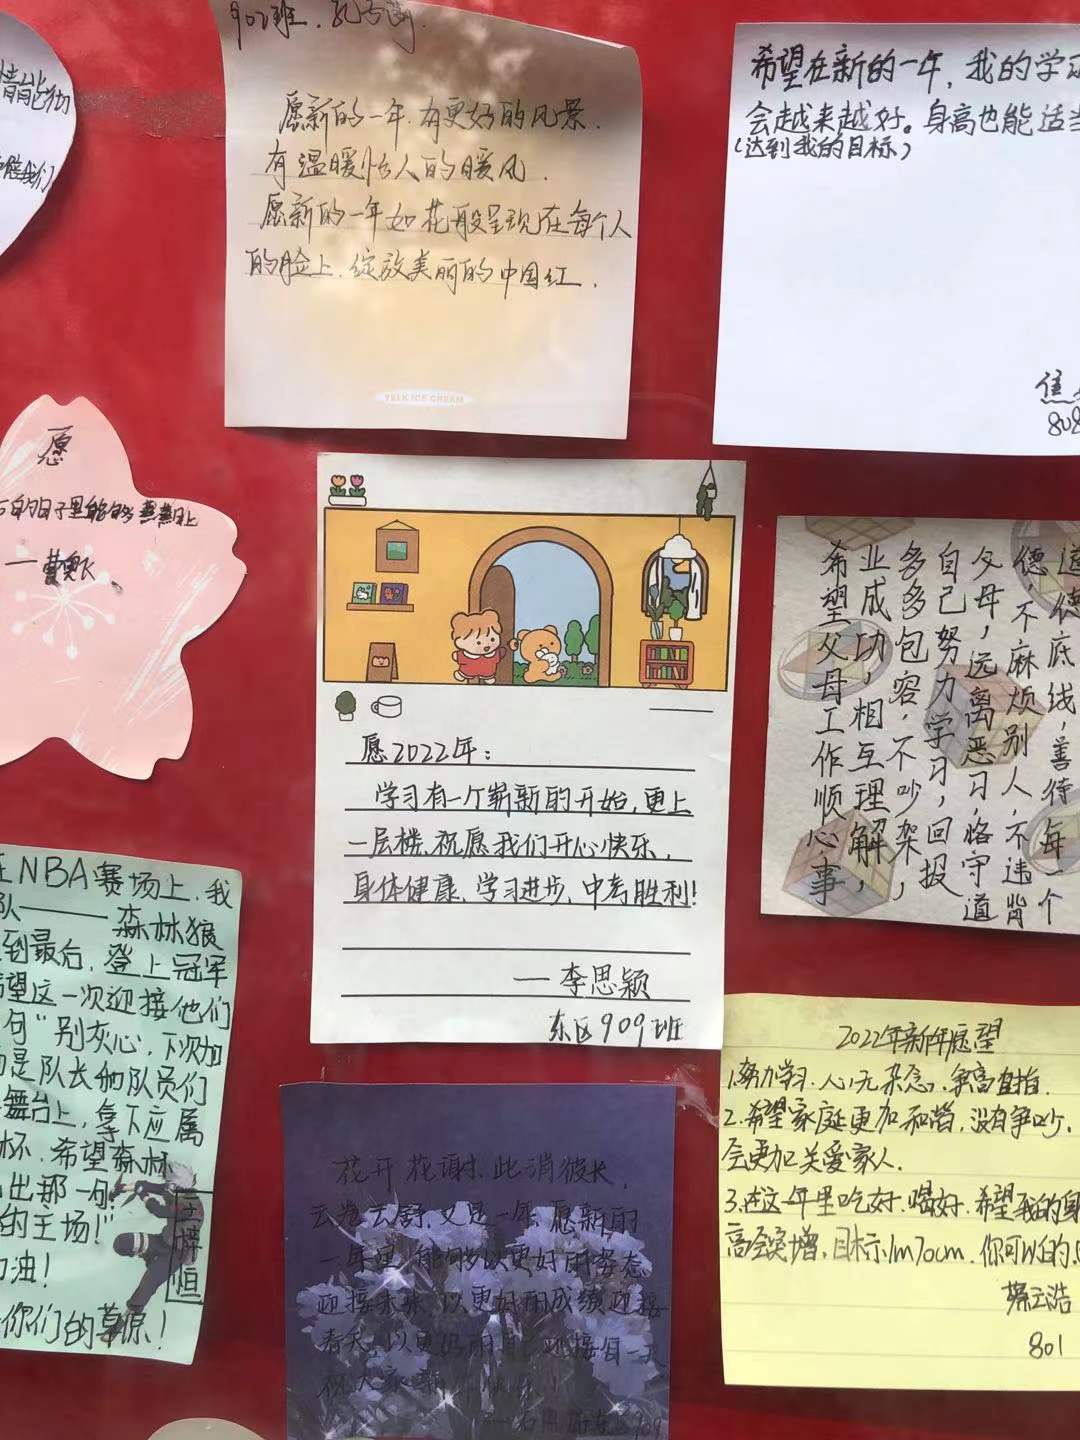 902班.
愿新的一年.有更好的风景.
有温暖怡人的暖风.
愿新的一年如花般呈现在每个人
的脸上.绽放美丽的中国红.
YELK ICE CREAM
希望在新的一年,我的学
会越来越好。身高也能适当
(达到我的目标)
808
愿
的日子里能够蒸蒸日上
愿2022年:
学习有一个崭新的开始,更上
一层楼、祝愿我们开心快乐,
身体健康、学习进步、中考胜利!
—李思颖
东区909班
希望父母工作顺心事
业成功,相互理解,
多多包容,不吵架,
自己努力学习,回报
父母,远离恶习,恪守道
德,不麻烦别人,不违背
道德底线,善待每一个
NBA赛场上.我
队——森林狼
到最后.登上冠军
望这一次迎接他们
句"别灰心,下次加
是队长和队员们
舞台上,拿下应属
杯.希望森林
出那一句:
的主场!"
油!
王梓恒
你们的草原!
花开花谢.此消彼长,
云卷云舒.又是一年.愿新的
一年里,能够以更好的姿态
迎接未来,以更好的成绩迎接
春天,以更好的自己迎接每一天
祝大家新
909
2022年新年愿望
1.努力学习.心无杂念.争高直指.
2.希望家庭更加和谐,没有争吵.
会更加关爱家人.
3.在这一年里吃好.喝好.希望我的身
高会突增.目标:1m70cm.你可以的.
801